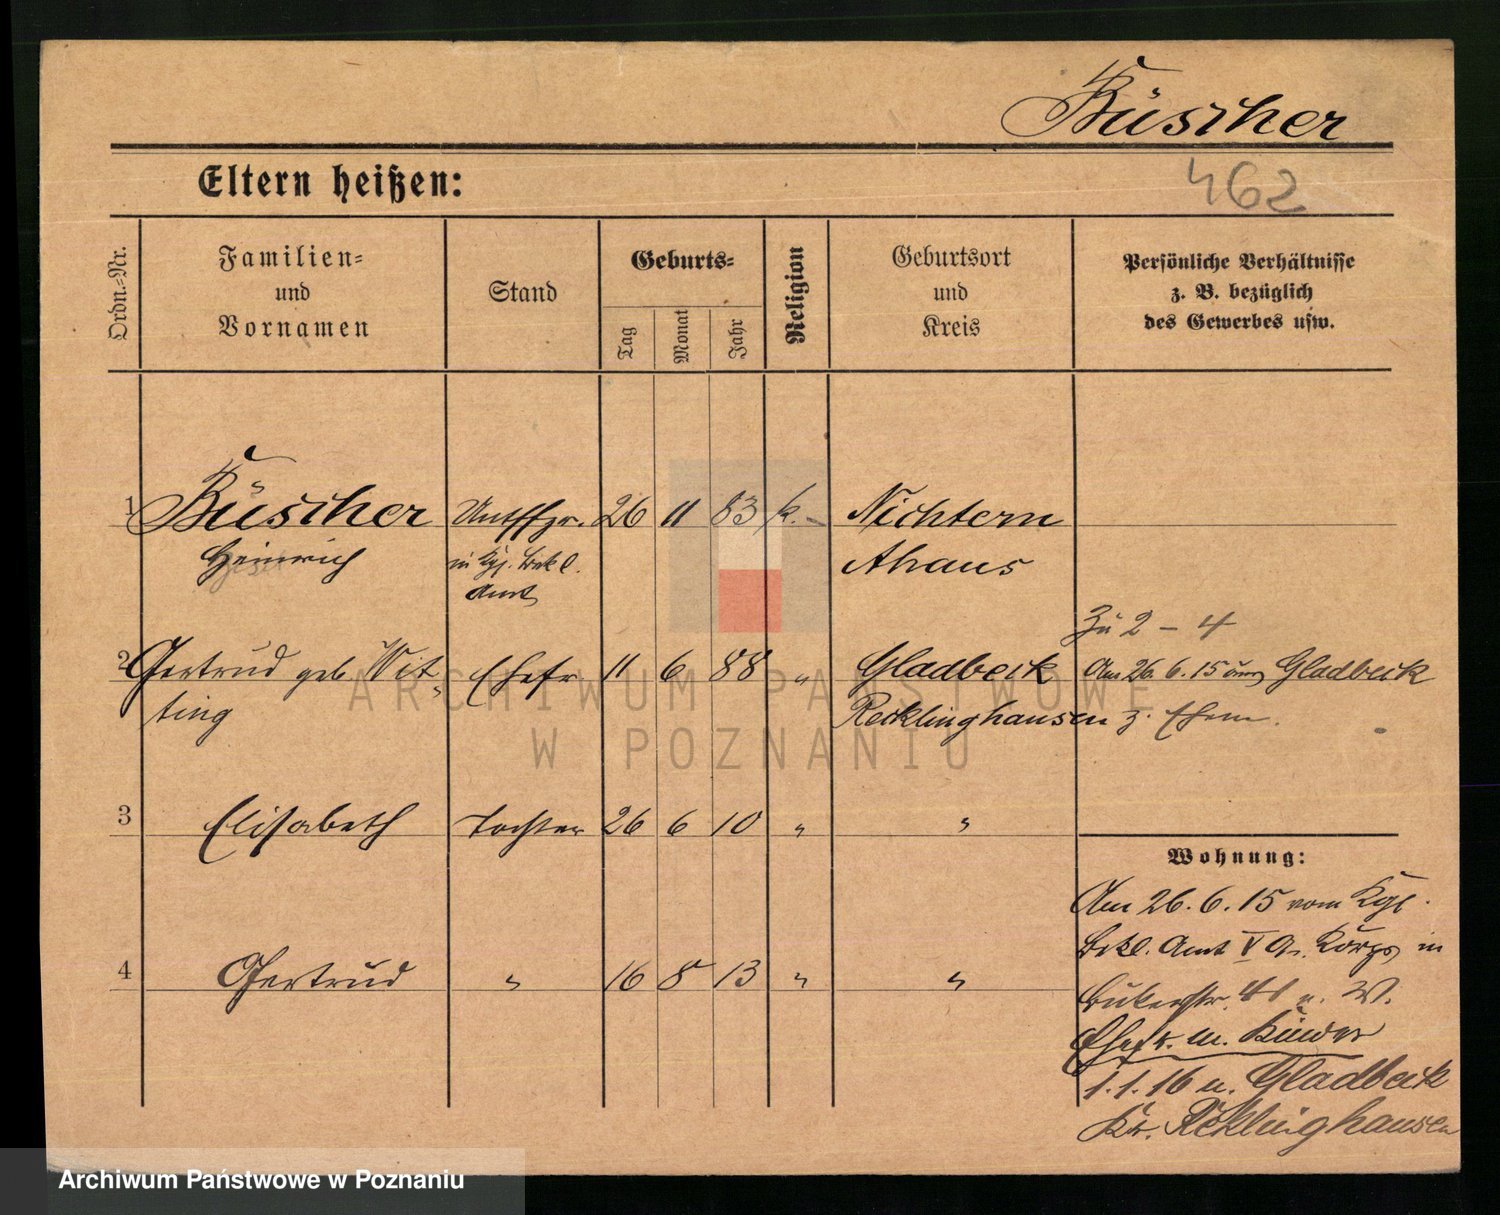 Büscher
Eltern heißen:
462
Ordn.-Nr.
Familien-
und
Vornamen
Stand
Geburts-
Tag
Monat
Jahr
Religion
Geburtsort
und
Kreis
Persönliche Verhältnisse
z. B. bezüglich
des Gewerbes usw.
1 Büscher Untffzr. 26 11 83 k. Nichtern
Heinrich in Kgl. Bekl. Ahaus
Amt
Zu 2 – 4
2 Gertrud geb. Wit- Ehefr 11 6 88 " Gladbeck Am 26.6.15 Gladbeck
ting Recklinghausen z.
3 Elisabeth Tochter 26 6 10 " "
4 Gertrud " 16 8 13 " "
Wohnung:
Am 26.6.15 vom Kgl.
Bekl. Amt V A. Korps in
Bukerstr. 41 W.
Ehefr. m. Kinder
1.1.16 n. Gladbeck
Kr. Recklinghausen
ARCHIWUM PAŃSTWOWE
W POZNANIU
Archiwum Państwowe w Poznaniu